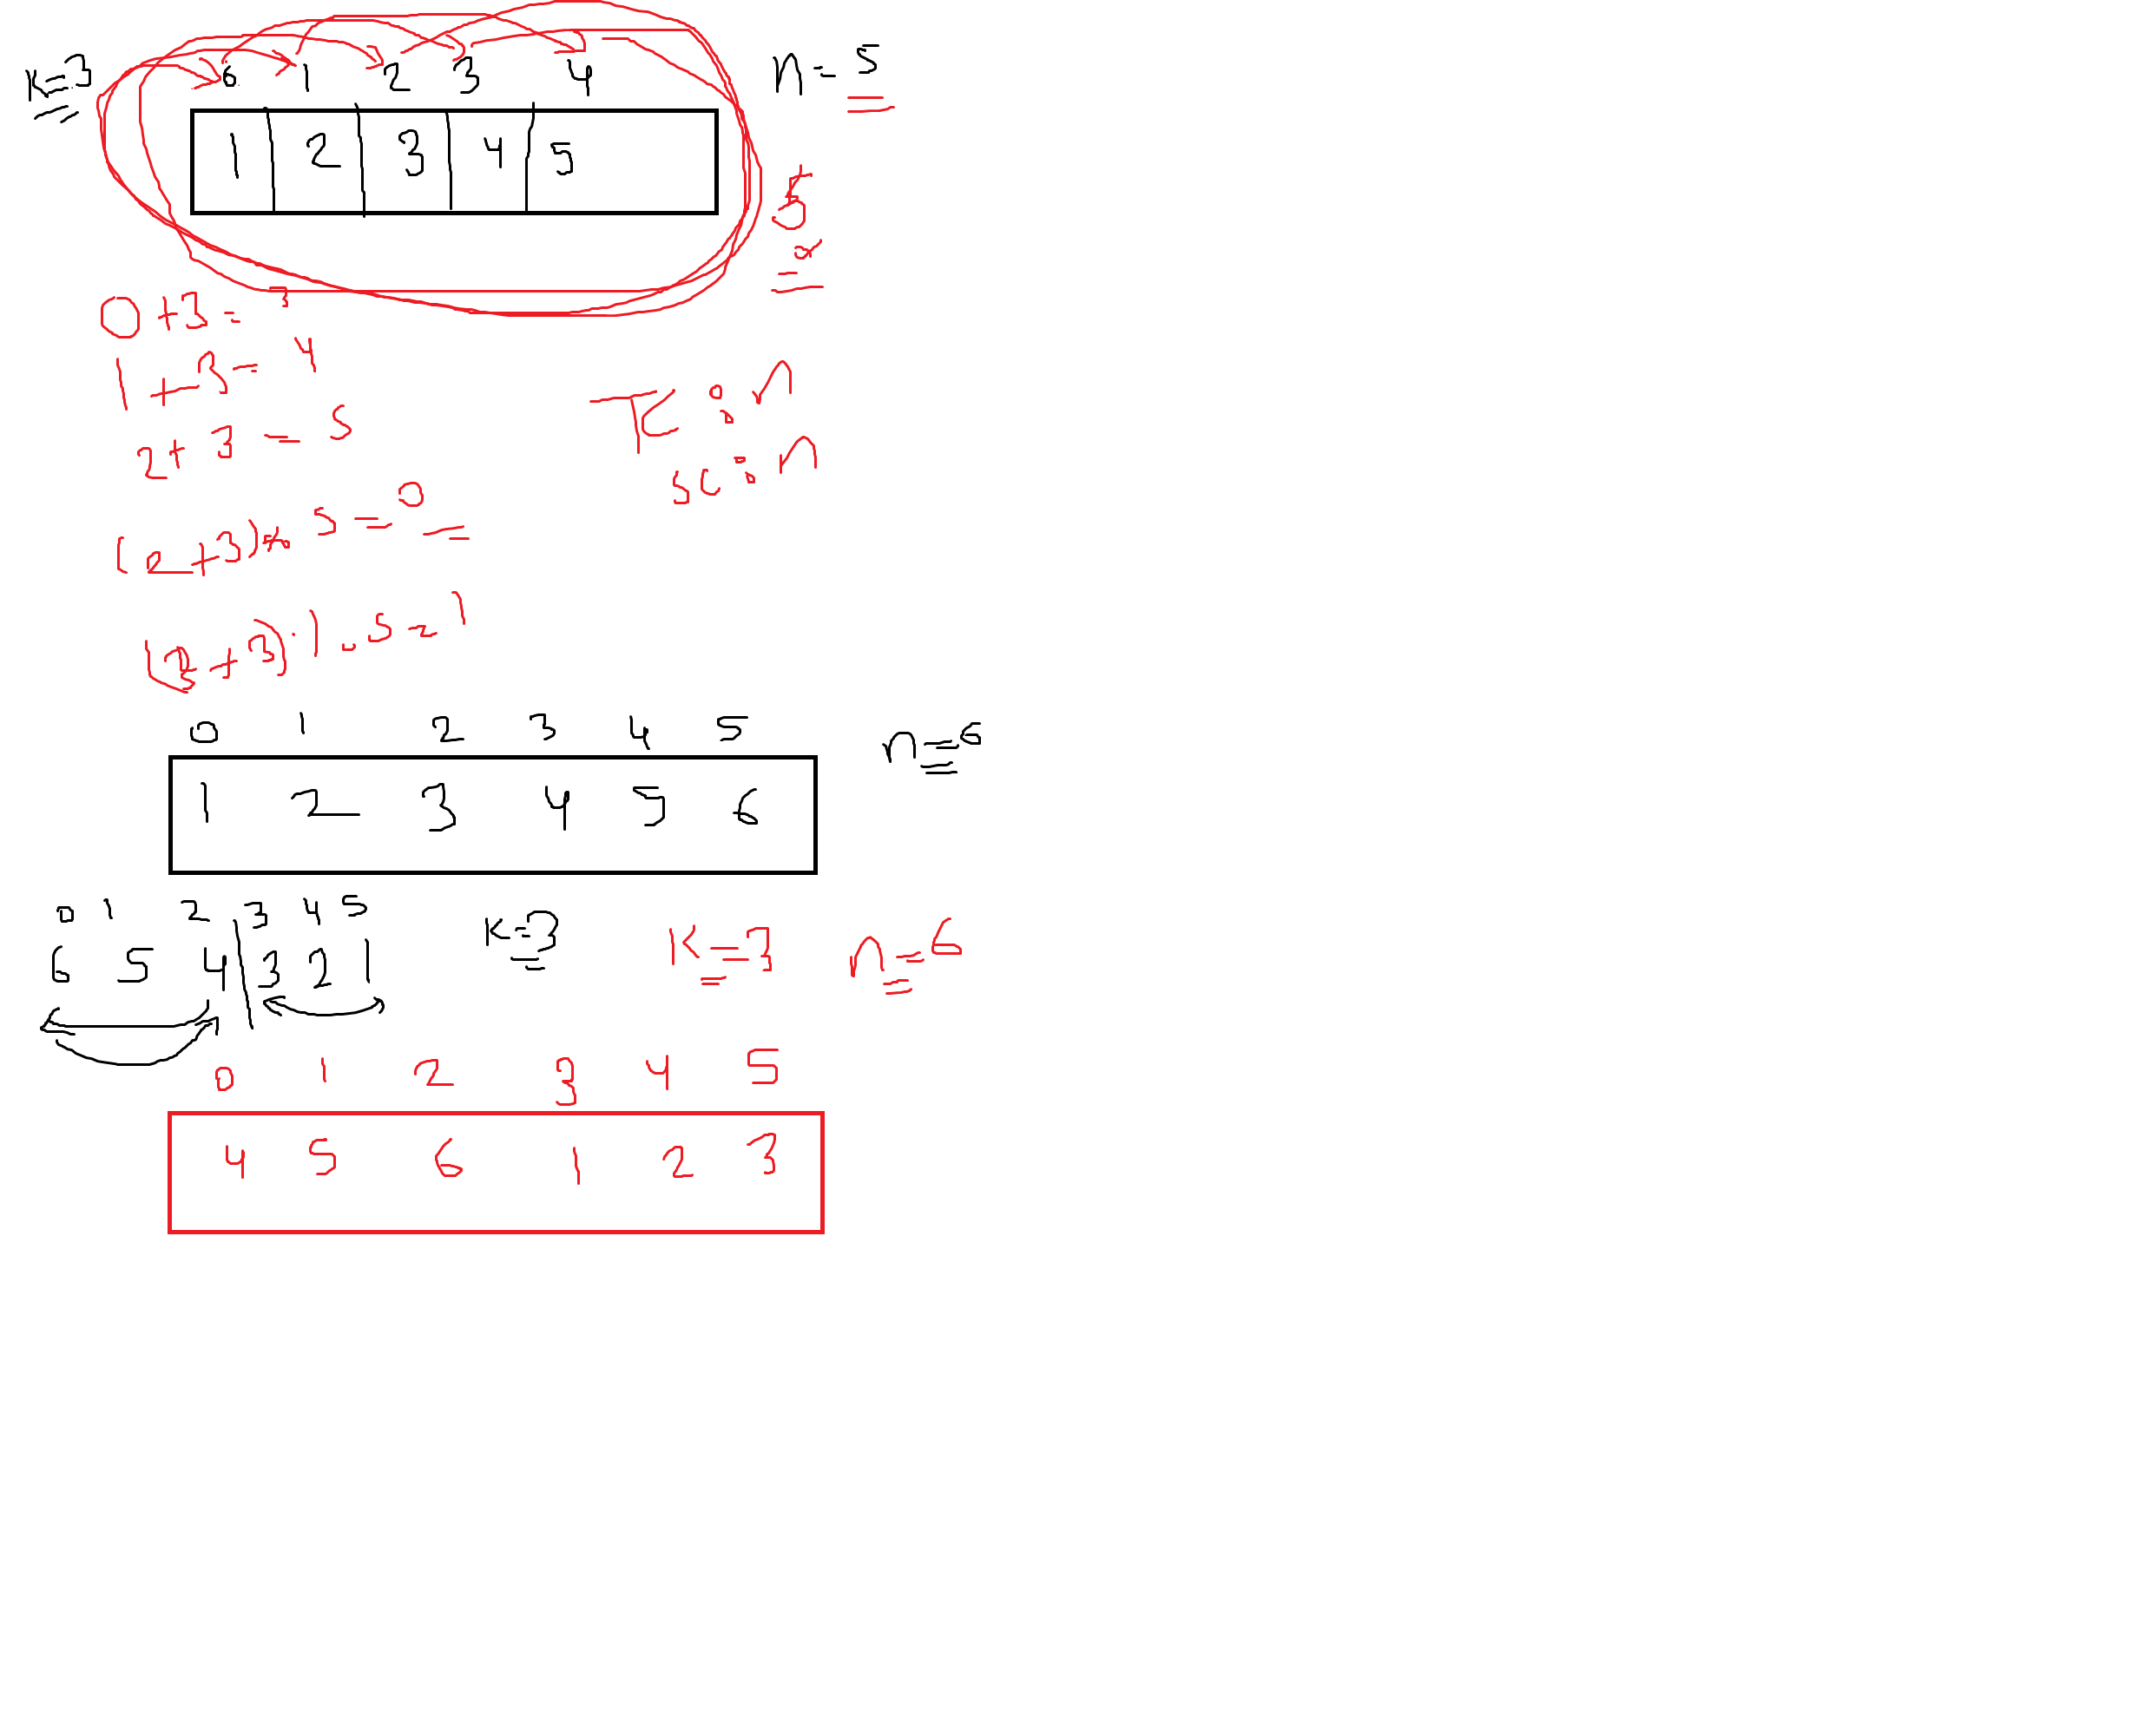 K=3
0 1 2 3 4
n=5
1 2 3 4 5
5
0+3=3
1+3=4
2+3=5
TC:n
SC:n
(2+3)% 5=0
(3+3)%5=1
0 1 2 3 4 5
n=6
1 2 3 4 5 6
0 1 2 3 4 5
6 5 4 3 2 1
K=3
K=3
n=6
0 1 2 3 4 5
4 5 6 1 2 3